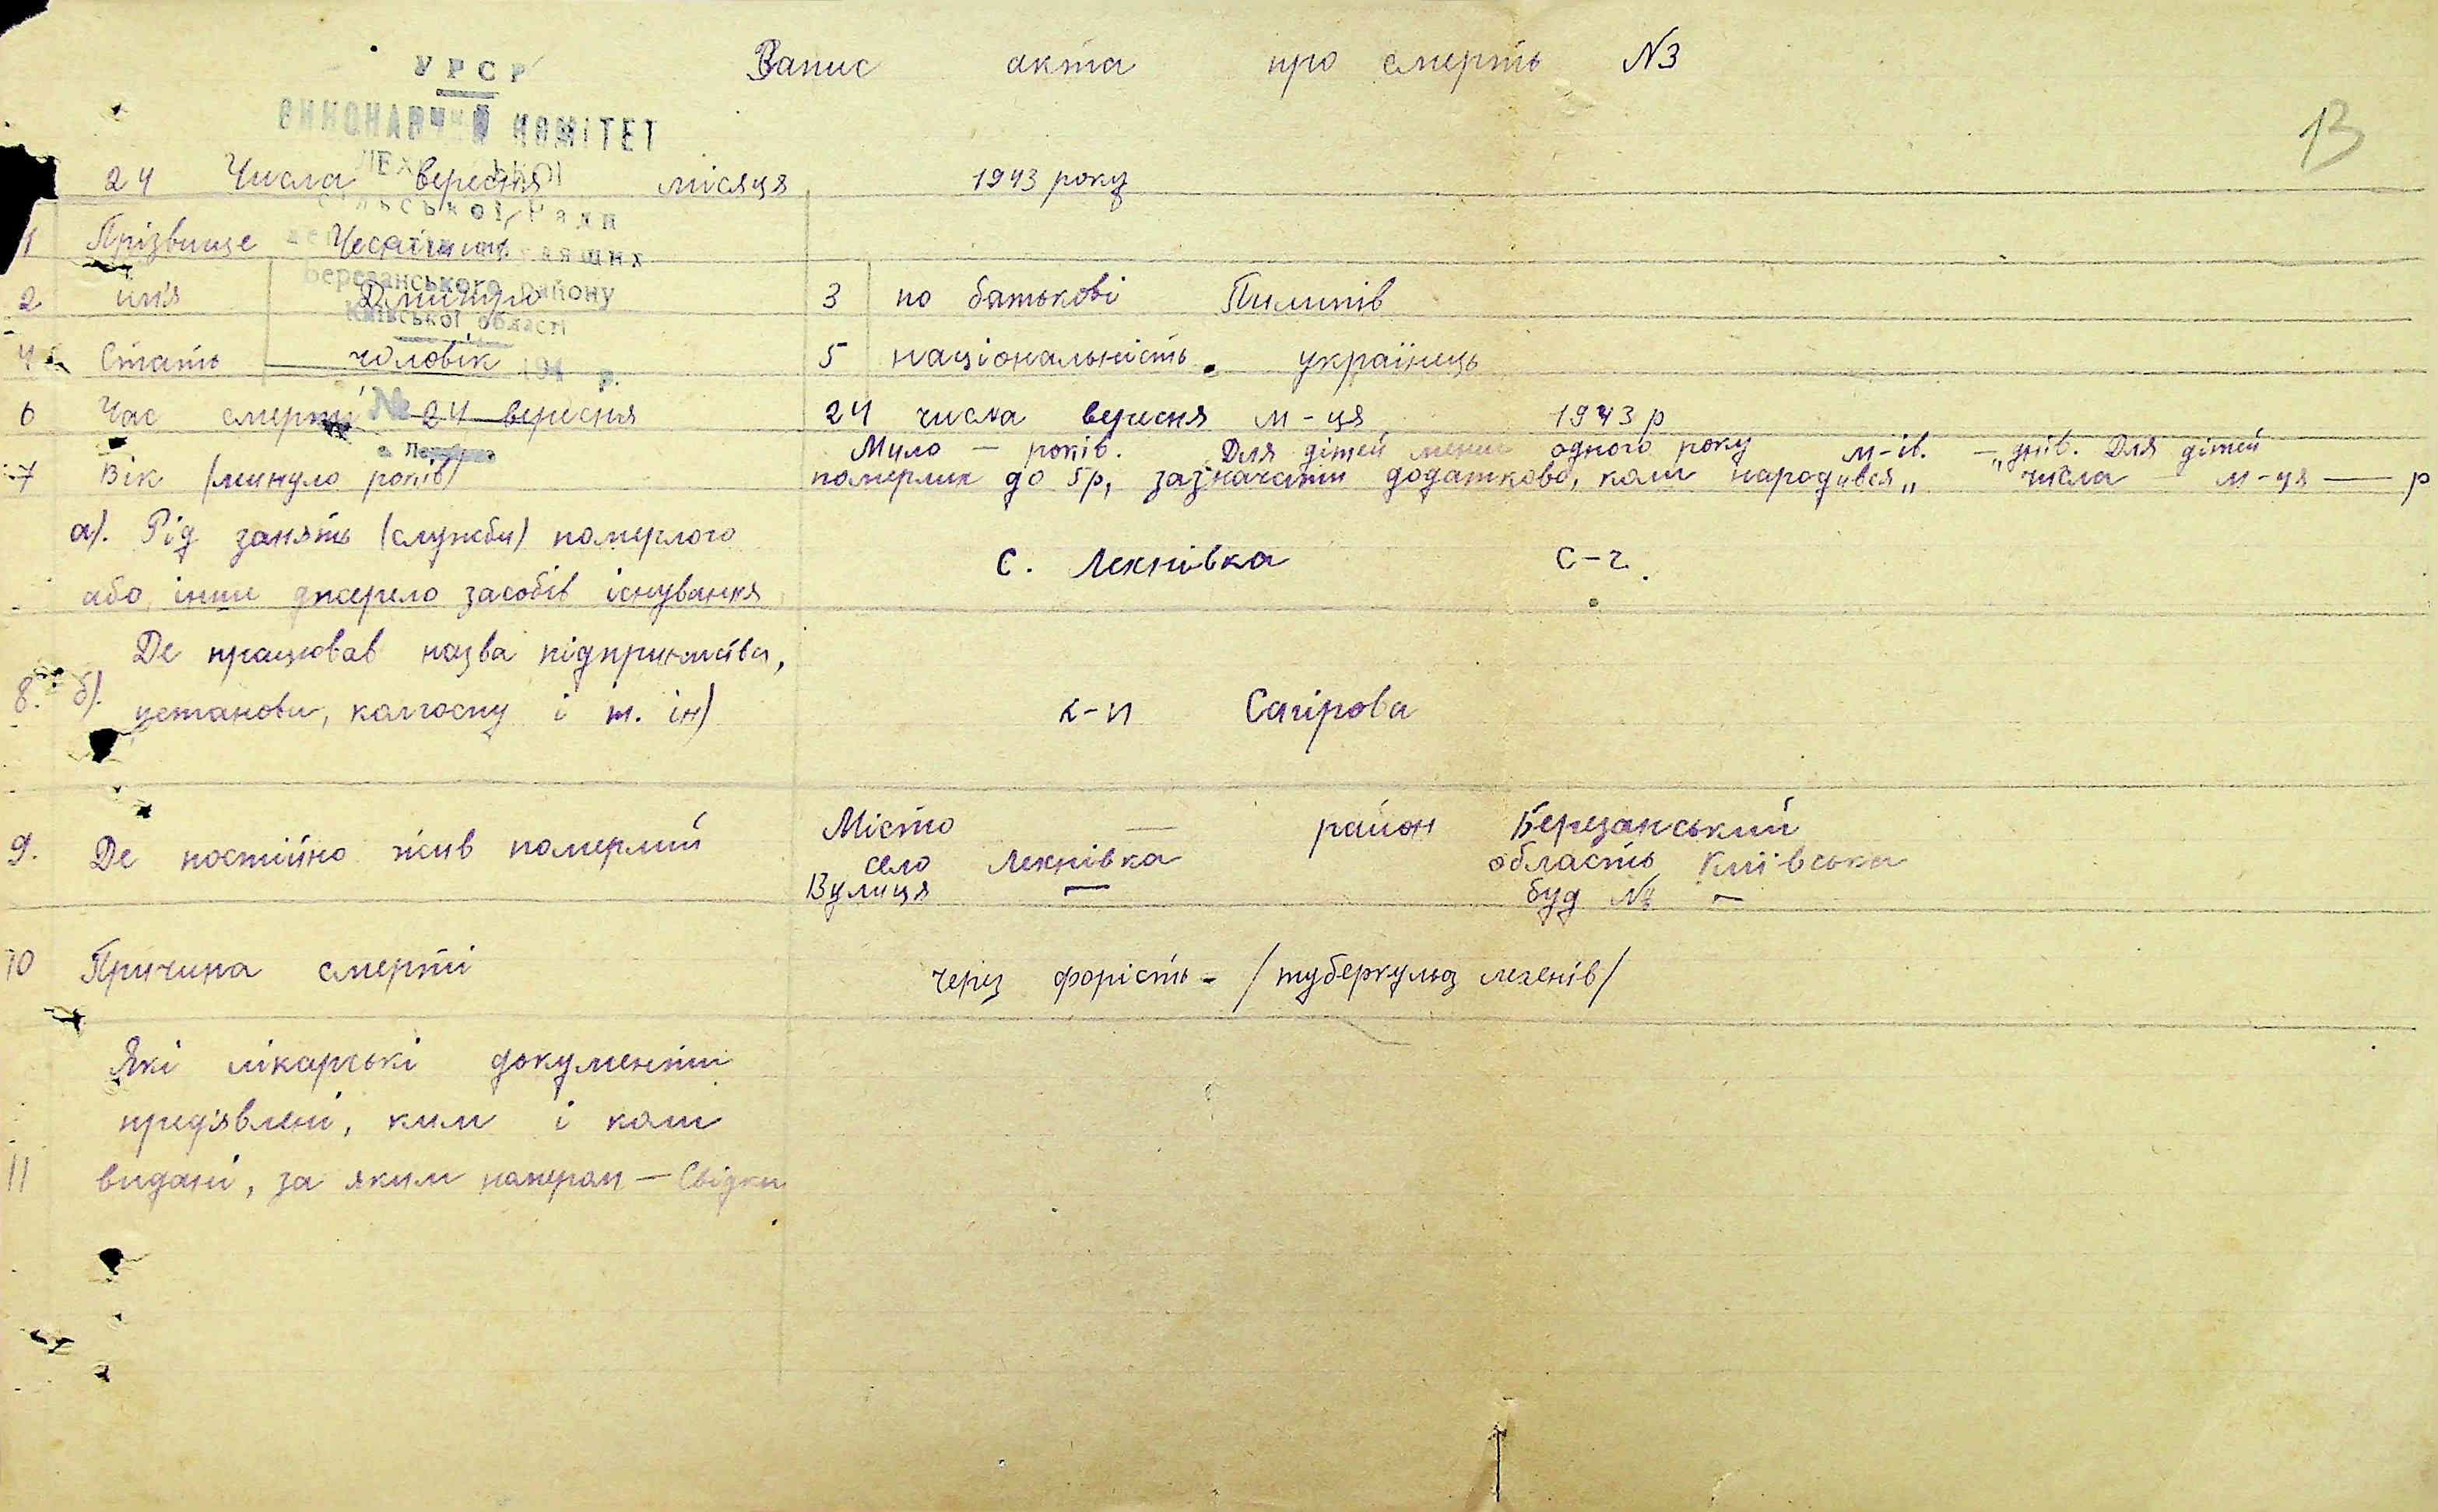 УРСР
ВИКОНАВЧИЙ КОМІТЕТ
сільської Ради
Березанського району
Київської області
194 р.
№
Запис акта про смерть №3
13
24 Числа вересня місяця 1943 року
1 Прізвище
2 імʼя
3 по батькові Пилипів
4 Стать чоловік
5 національність українець
6 Час смерти 24 вересня 24 числа вересня м-ця 1943 р
7 Вік /минуло років/
Муло — років. Для дітей менше одного року м-ів. — „ днів. Для дітей
померлих до 5р, зазначати додатково, коли народився „ числа — м-ця — р
а). Рід занять (службы) померлого
або інше джерело засобів існування
с. Лехнівка с-г.
8. б). Де працював назва підприємства,
установи, колгоспу і т. ін)
к-п
9. Де постійно жив померлий
Місто — район Березанський
село Лехнівка область Київська
Вулиця — буд № —
10 Причина смерти
через форість - /туберкульоз легенів/
11 Які лікарські документи
предʼявлені, ким і коли
видані, за яким номером — Свідки